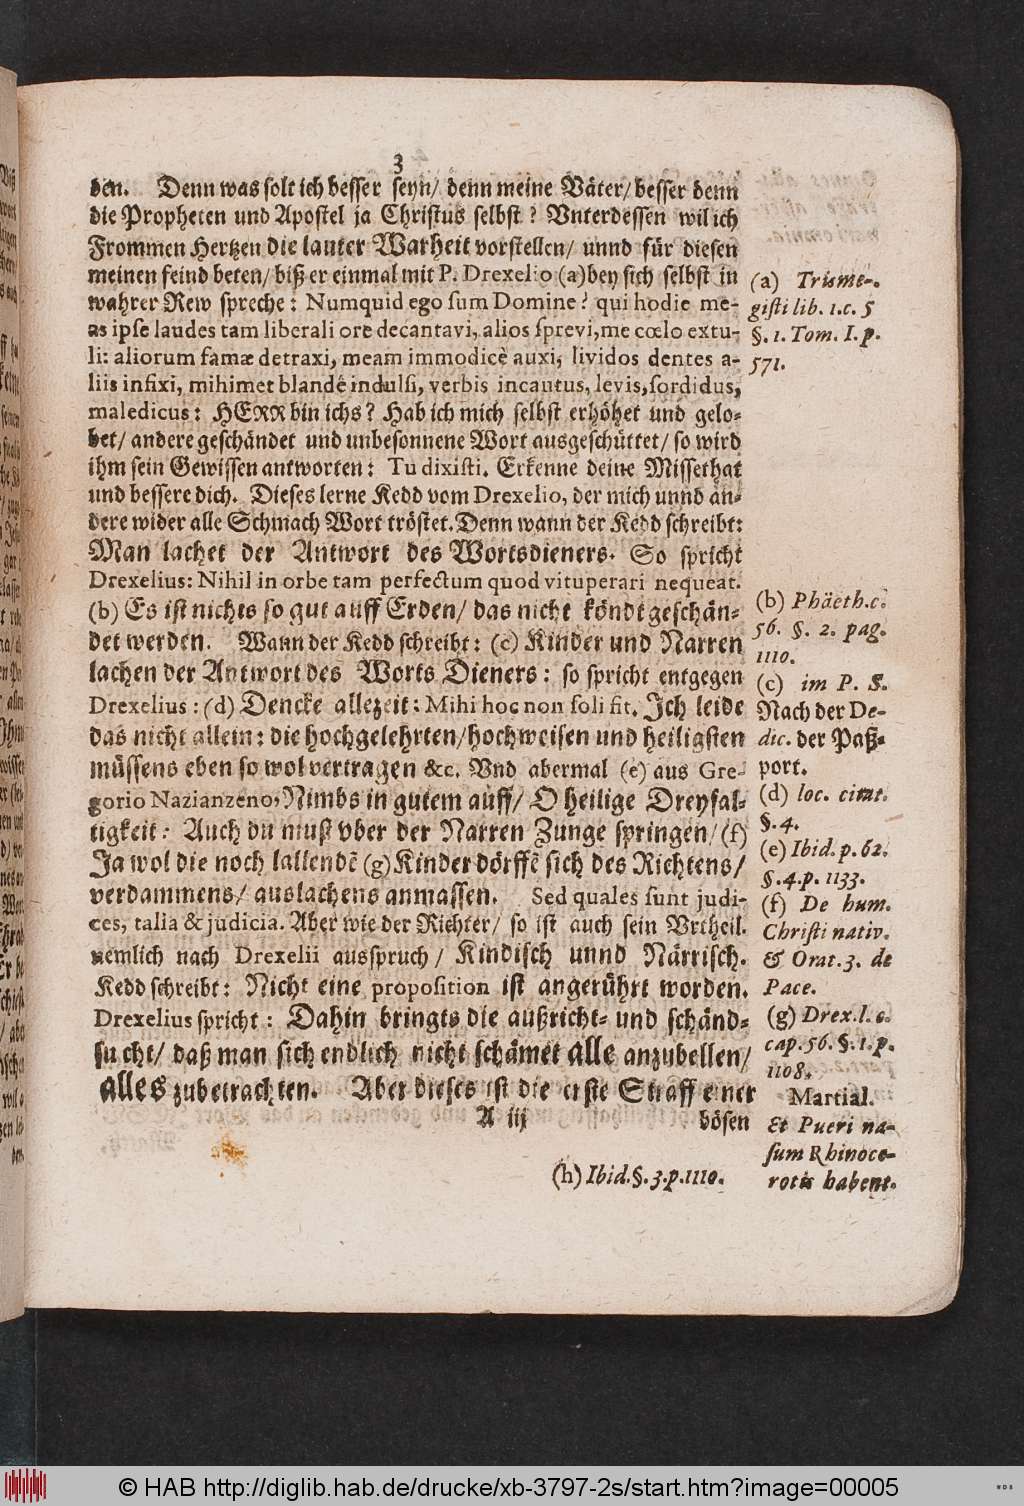 3
den. Denn was solt ich besser seyn/ denn meine Väter/ besser denn
die Propheten und Apostel ja Christus selbst? Vnterdessen wil ich
Frommen Hertzen die lauter Warheit vorstellen/ unnd für diesen
meinen feind beten/ biß er einmal mit P. Drexelio (a) bey sich selbst in
wahrer Rew spreche: Numquid ego sum Domine? qui hodie me-
as ipse laudes tam liberali ore decantavi, alios sprevi, me cœlo extu-
li: aliorum famæ detraxi, meam immodicè auxi, lividos dentes a-
liis infixi, mihimet blandé indulsi, verbis incautus, levis, sordidus,
maledicus: HERR bin ichs? Hab ich mich selbst erhöhet und gelo-
bet/ andere geschändet und unbesonnene Wort ausgeschüttet/ so wird
ihm sein Gewissen antworten: Tu dixisti. Erkenne deine Missethat
und bessere dich. Dieses lerne Kedd vom Drexelio, der mich unnd an-
dere wider alle Schmach Wort tröstet. Denn wann der Kedd schreibt:
Man lachet der Antwort des Wortsdieners. So spricht
Drexelius: Nihil in orbe tam perfectum quod vituperari nequeat.
(b) Es ist nichts so gut auff Erden/ das nicht köndt geschän-
det werden. Wann der Kedd schreibt: (c) Kinder und Narren
lachen der Antwort des Worts Dieners: so spricht entgegen
Drexelius: (d) Dencke allezeit: Mihi hoc non soli fit. Ich leide
das nicht allein: die hochgelehrten/ hochweisen und heiligsten
müssens eben so wol vertragen &c. Vnd abermal (e) aus Gre-
gorio Nazianzeno, Nimbs in gutem auff/ O heilige Dreyfal-
tigkeit: Auch du must vber der Narren Zunge springen/ (f)
Ja wol die noch lallendē (g) Kinder dörffē sich des Richtens/
verdammens/ auslachens anmassen. Sed quales sunt judi-
ces, talia & judicia. Aber wie der Richter/ so ist auch sein Vrtheil.
nemlich nach Drexelii ausspruch/ Kindisch unnd Närrisch.
Kedd schreibt: Nicht eine proposition ist angerührt worden.
Drexelius spricht: Dahin bringts die außricht- und schänd-
sucht/ daß man sich endlich nicht schämet alle anzubellen/
alles zubetrachten. Aber dieses ist die erste Straff einer
A iij
bösen
(h) Ibid. §. 3. p. 1110.
(a) Trisme-
gisti lib. 1. c. 5
§. 1. Tom. I. p.
571.
(b) Phäeth. c.
56. §. 2. pag.
1110.
(c) im P. S.
Nach der De-
dic. der Paß-
port.
(d) loc. citat.
§. 4.
(e) Ibid. p. 62.
§. 4. p. 1133.
(f) De hum.
Christi nativ.
& Orat. 3. de
Pace.
(g) Drex. l. c.
cap. 56. §. 1. p.
1108.
Martial.
Et Pueri na-
sum Rhinoce-
rotis habent.
© HAB http://diglib.hab.de/drucke/xb-3797-2s/start.htm?image=00005